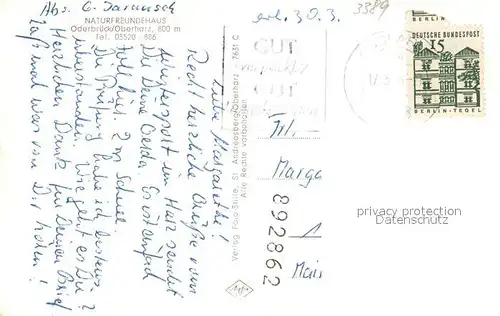 Abs. G.
NATURFREUNDEHAUS
Oderbrück/Oberharz, 800 m
Tel. 03520 886
Liebe Margarethe!
Recht herzliche Grüße vom
Wintersport im Harz sendet
Dir Deine Gerda. Es ist einfach
toll hier. 2 m Schnee.
Die Prüfung habe ich bestens
überstanden. Wie geht es Dir?
Herzlichen Dank für Deinen Brief
Laß mal was von Dir hören!
Verlag Foto-Stille, St. Andreasberg/Oberharz - 7631 C
Alle Rechte vorbehalten
erh. 30.3.
3389
GUT
verpackt
GUT
BERLIN
DEUTSCHE BUNDESPOST
15
BERLIN-TEGEL
Frl.
Marga
1
Main
892862
privacy protection
Datenschutz